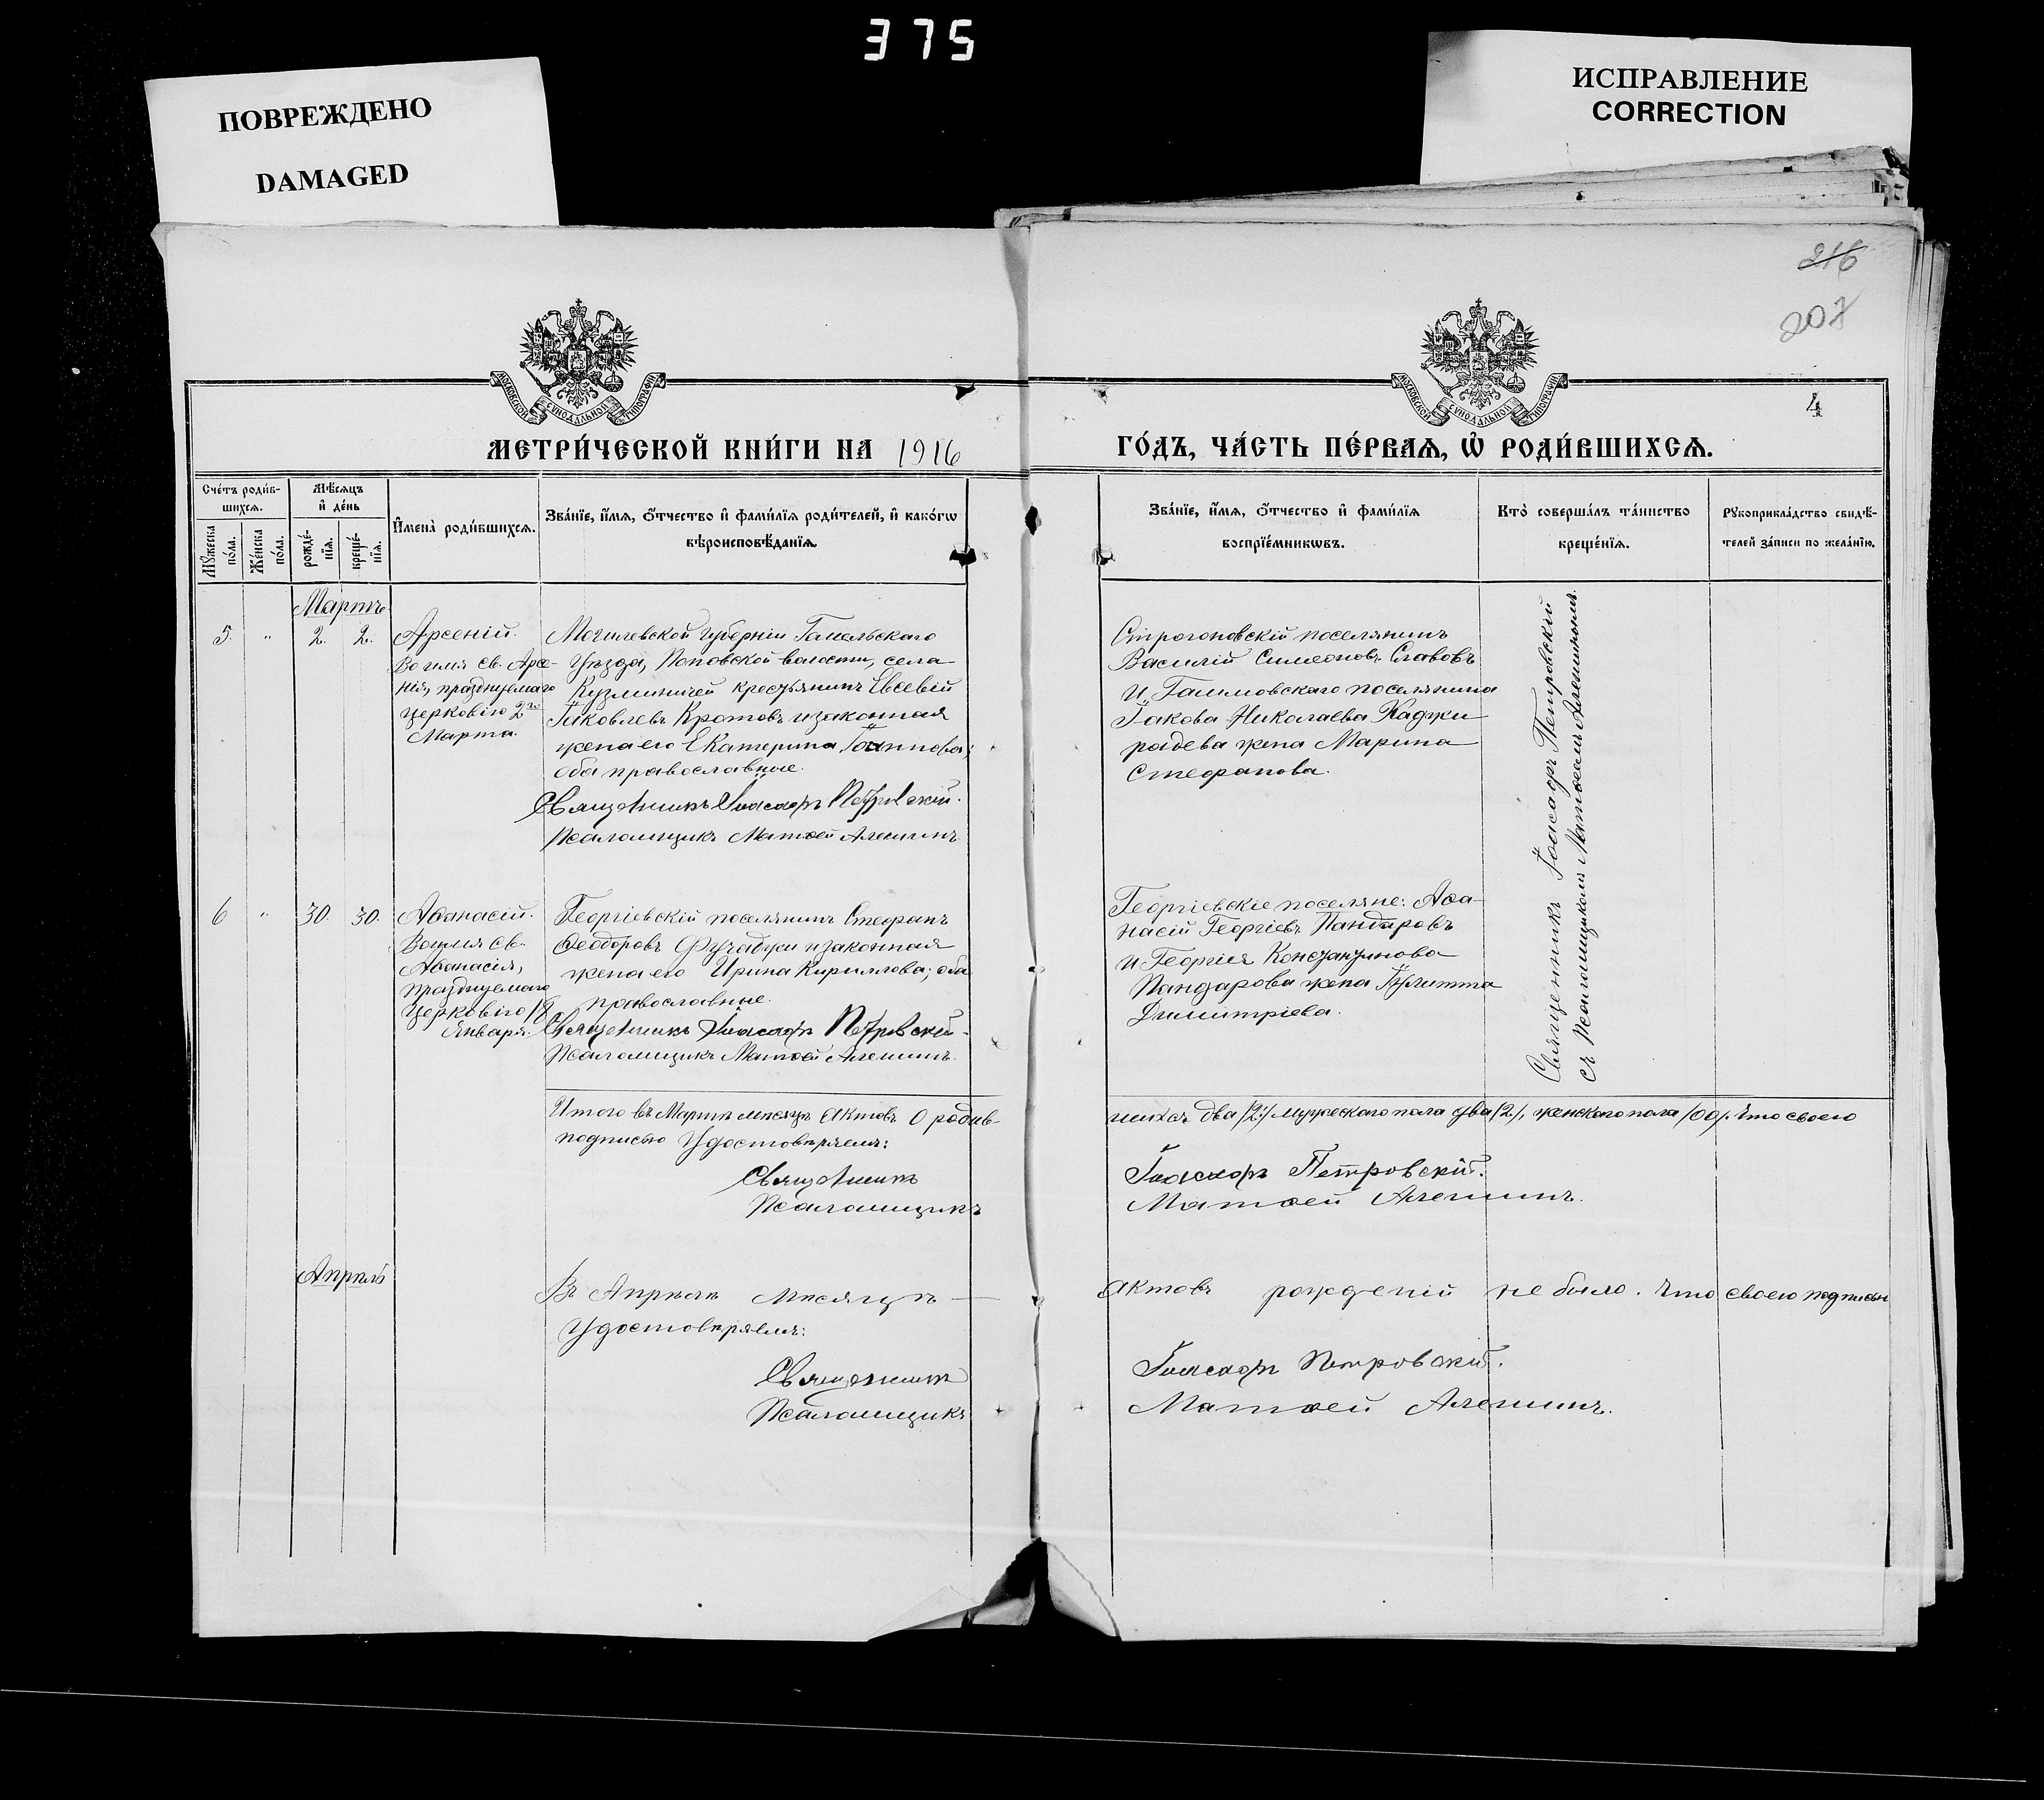 375
ПОВРЕЖДЕНО
DAMAGED
ИСПРАВЛЕНИЕ
CORRECTION
216
207
4
МОСКОВСКОЙ СѴНОДАЛЬНОЙ ТИПОГРАФІИ
МОСКОВСКОЙ СѴНОДАЛЬНОЙ ТИПОГРАФІИ
МЕТРИ́ЧЕСКОЙ КНИ́ГИ НА 1916
ГО́ДЪ, ЧА́СТЬ ПЕ́РВАѦ, Ѡ҆ РОДИ́ВШИХСѦ.
Сче́тъ роди́в-
шихсѧ.
Мꙋ́жеска
по́ла.
Же́нска
по́ла.
Мѣ́сѧцъ
и҆ де́нь
рожде́-
нїѧ.
креще́-
нїѧ.
И҆мена̀ роди́вшихсѧ.
Зва́нїе, и҆́мѧ, ѻ҆́тчество и҆ фами́лїѧ роди́телей, и҆ како́гѡ
вѣроисповѣ́данїѧ.
Зва́нїе, и҆́мѧ, ѻ҆́тчество и҆ фами́лїѧ
воспрїе́мникѡвъ.
Кто̀ соверша́лъ та́инство
креще́нїѧ.
Рꙋкоприкла́дство свидѣ́-
телей за́писи по жела́нїю.
Мартъ
5. " 2. 2. Арсеній.
Во имя св. Арсе-
нія, празднуемаго
церковію 2го
Марта.
Могилевской губерніи Гомельскаго
Уѣзда, Поповской волости, села
Кузминичей крестьянинъ Евсевій
Іаковлевъ Кротовъ и законная
жена его Екатерина Іоаннова;
оба православные.
Священникъ Іоасафъ Петровскій.
Псаломщикъ Матѳей Алешинъ.
Строгоновскій поселянинъ
Василій Симеоновъ Славовъ
и Іакова Николаева Хаджи
радева жена Марина
Стефанова.
Священникъ Іоасафъ Петровскій
съ Псаломщикомъ Матѳеемъ Алешинымъ.
6 " 30. 30. Аѳанасій.
Во имя св.
Аѳанасія,
празднуемаго
церковію 18
Января.
Георгіевскій поселянинъ Стефанъ
Ѳеодоровъ Фучаджи и законная
жена его Ирина Кириллова; оба
православные.
Священникъ Іоасафъ Петровскій.
Псаломщикъ Матѳей Алешинъ.
Георгіевскіе поселяне: Аѳа-
насій Георгіевъ Пандаровъ
и Георгія Константинова
Пандарова жена Іулитта
Димитріева.
Итого въ Мартѣ мѣсяцѣ актовъ о родив-
шихся два /2:/ мужескаго пола два /2/, женскаго пола /00/. Что своею
подписью удостовѣряемъ:
Священникъ Іоасафъ Петровскій.
Псаломщикъ Матѳей Алешинъ.
Апрѣль
Въ Апрѣлѣ мѣсяцѣ — актовъ рожденій не было. Что своею подписью
удостовѣряемъ:
Священникъ Іоасафъ Петровскій.
Псаломщикъ Матѳей Алешинъ.